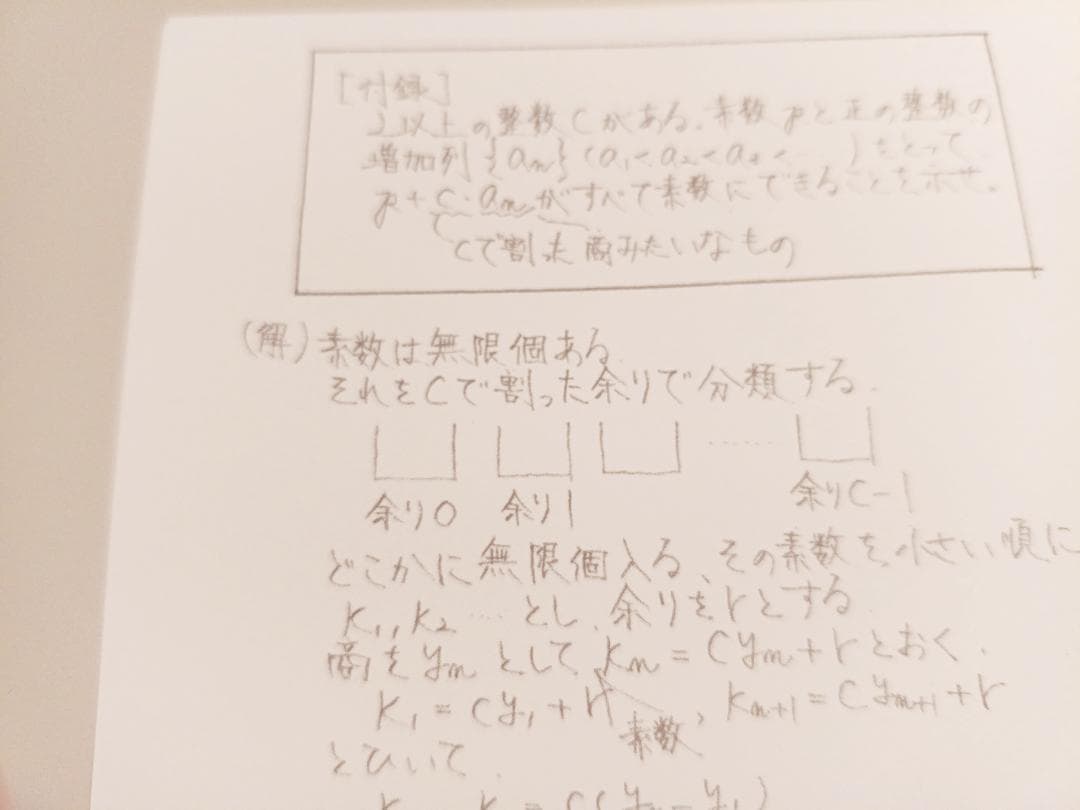 [付録]
2以上の整数Cがある.素数pと正の整数の
増加列{an}(a1<a2<a3<……)をとって
p+C・anがすべて素数にできることを示せ。
Cで割った商みたいなもの
(解)素数は無限個ある.
それをCで割った余りで分類する.
……
余り0 余り1 余りC-1
どこかに無限個入る、その素数を小さい順に
k1,k2…とし、余りをrとする
商をynとして kn=Cyn+rとおく.
k1=Cy1+r, kn+1=Cyn+1+r
素数
とひいて.